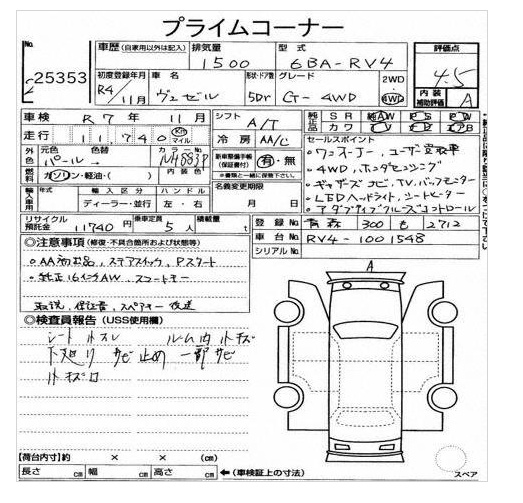 プライムコーナー
No. 25353
車歴 (自家用以外は記入)
排気量 1500
型式 6BA-RV4
評価点 4.5
初度登録年月 R4/11月
車名 ヴェゼル
形状・ドア数 5Dr
グレード G-4WD
2WD
4WD
内装補助評価 A
車検 R7年11月
シフト A/T
純正品 SR AW PS PW
カワ TV ナビ エアB
走行 11,740 Km マイル
冷房 AA/C
セールスポイント
ワンオーナー、ユーザー買取車
4WD、ホンダセンシング
ギャザズナビ、TV、バックモニター
LEDヘッドライト、シートヒーター
アダプティブクルーズコントロール
外色 元色 パール
色替
カラーNo. NH883P
新車整備手帳 (保証書付) 有・無
※書類と一緒に保管下さい。
燃料 ガソリン・軽油・( )
名義変更期限 月 日
輸入車用 輸入区分 ディーラー・並行
ハンドル 左・右
リサイクル預託金 11740円
乗車定員 5人
積載量 t
登録No. 青森 300 も 2712
車台No. RV4-1001548
シリアルNo.
◎注意事項 (修復・不具合箇所および状態等)
・AA初出品、ステアスイッチ、Pスタート
・純正16インチAW、スマートキー
取説、保証書、スペアキー 後送
◎検査員報告 (USS使用欄)
シートスレ ルーム内小キズ
下廻りサビ止め 一部サビ
小キズ
A
【荷台内寸】 × × (cm)
長さ cm 幅 cm 高さ cm ←(車検証上の寸法)
スペア